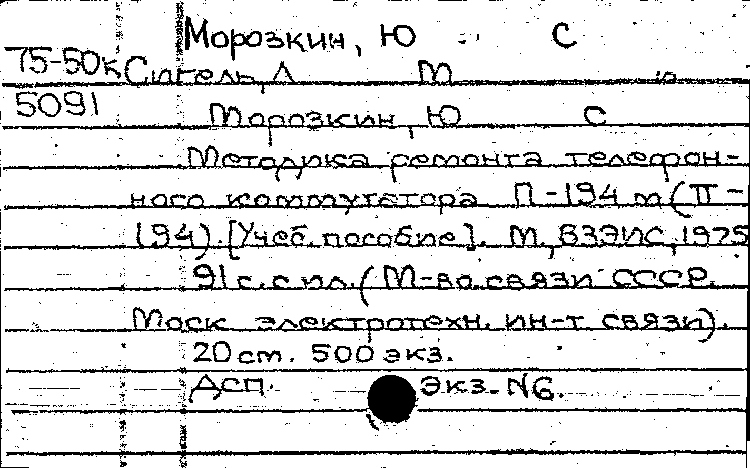 Морозкин, Ю С
75-50к Сигель, Л М
5091 Морозкин, Ю С
Методика ремонта телефон-
ного коммутатора П-194 м (П-
194). [Учеб. пособие]. М, ВЗЭИС, 1975
91 с. с ил. (М-во связи СССР.
Моск электротехн. ин-т связи).
20 см. 500 экз.
Дсп. Экз. N6.